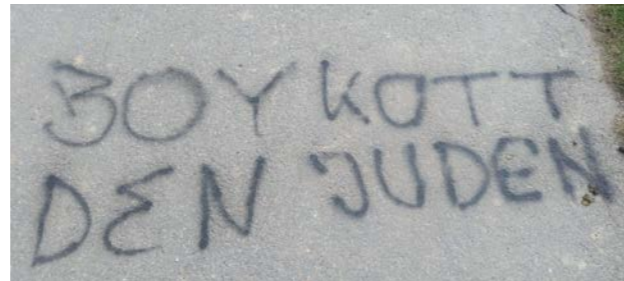 BOYKOTT
DEN JUDEN